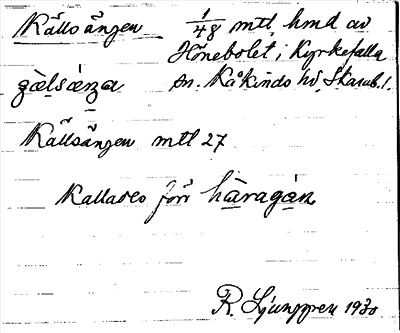 Källsängen 1/48 mtl, hmd av
Hönebolet i Kyrkefalla
sn. Kåkinds hd, Skarab. l.
Källsängen mtl 27
Kallades förr häragán
R. Ljunggren 1930